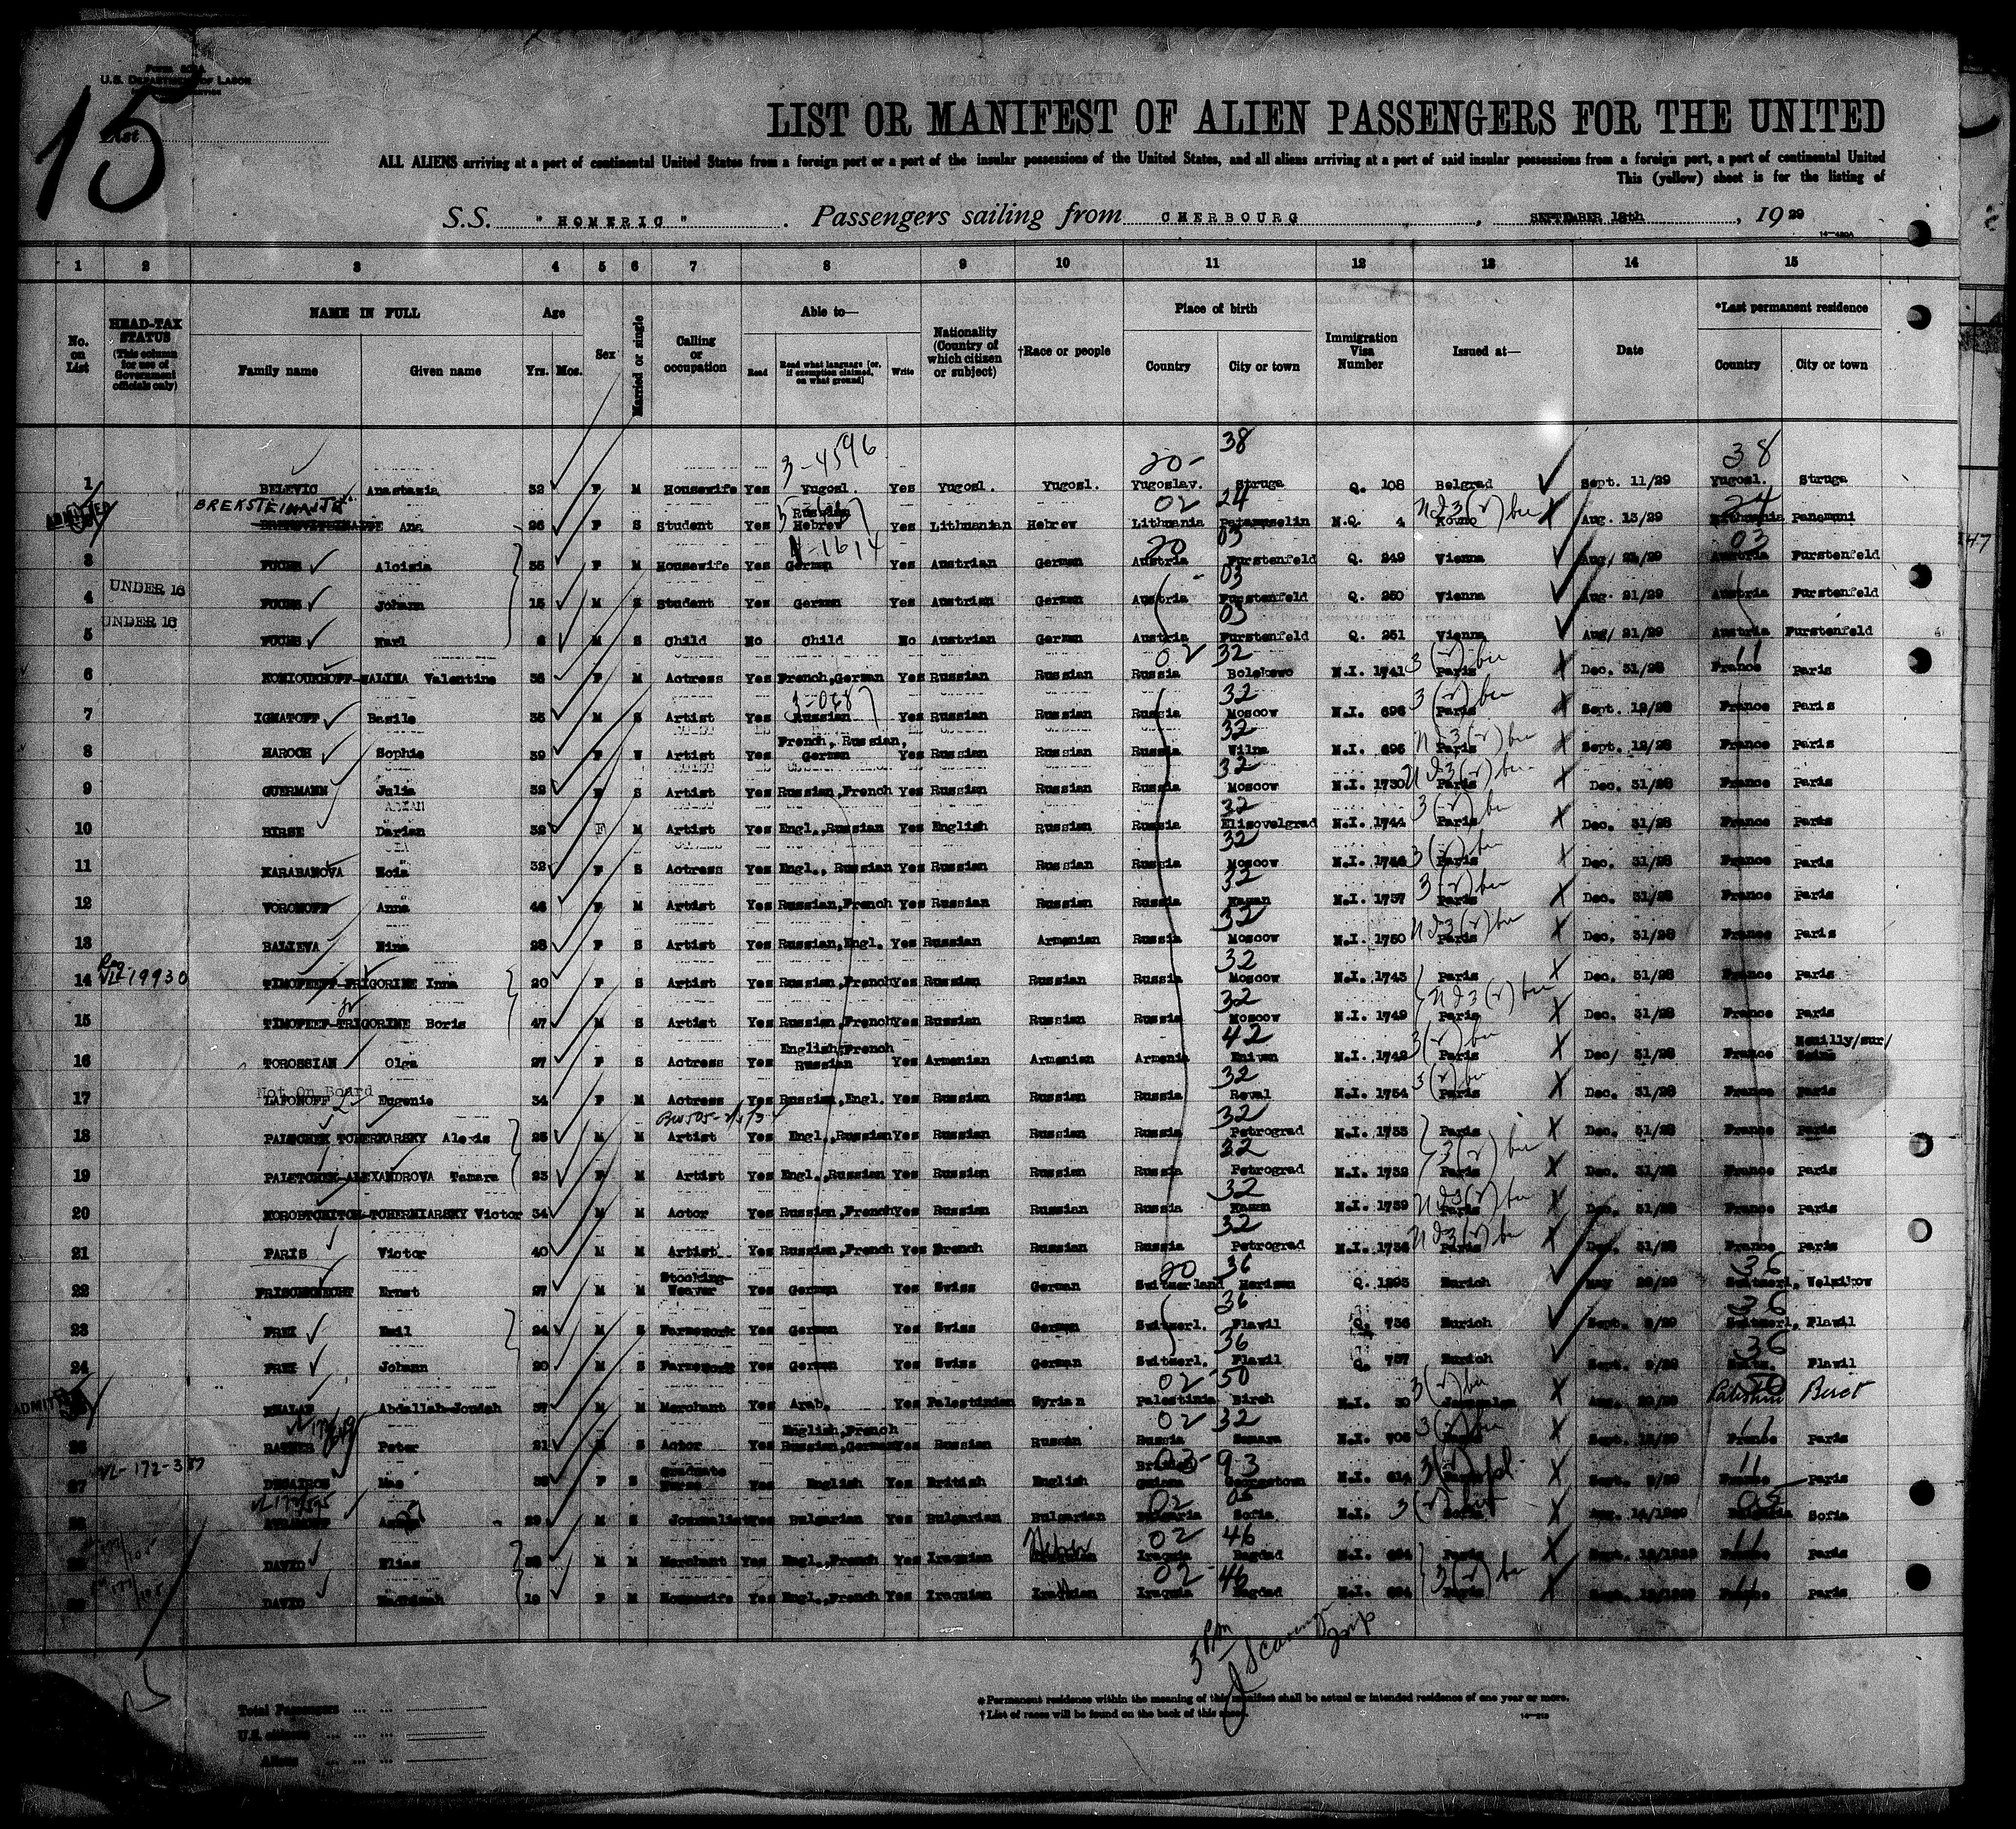 Form 500A
U.S. DEPARTMENT OF LABOR
15
List
LIST OR MANIFEST OF ALIEN PASSENGERS FOR THE UNITED
ALL ALIENS arriving at a port of continental United States from a foreign port or a port of the insular possessions of the United States, and all aliens arriving at a port of said insular possessions from a foreign port, a port of continental United
This (yellow) sheet is for the listing of
S.S. " HOMERIC " . Passengers sailing from CHERBOURG , SEPTEMBER 18th , 19 29
1 2 3 4 5 6 7 8 9 10 11 12 13 14 15
No. on List
HEAD-TAX STATUS (This column for use of Government officials only)
NAME IN FULL Family name Given name
Age Yrs. Mos.
Sex
Married or single
Calling or occupation
Able to— Read Read what language [or, if exemption claimed, on what ground] Write
Nationality (Country of which citizen or subject)
†Race or people
Place of birth Country City or town
Immigration Visa Number
Issued at—
Date
*Last permanent residence Country City or town
38
3-4596 20- 38
1 BELEVIC Anastasia 32 F M Housewife Yes Yugosl. Yes Yugosl. Yugosl. Yugoslav. Struga Q. 108 Belgrad Sept. 11/29 Yugosl. Struga
BREKSTEINAITE 02 24 24
ADMITTED Ana 26 F S Student Yes Russian Hebrew Yes Lithuanian Hebrew Lithuania N.Q. 4 Kovno Aug. 13/29 Lithuania Panemuni
20 03 03
3 FUCHS Aloisia 35 F M Housewife Yes German Yes Austrian German Austria Furstenfeld Q. 249 Vienna Aug/ 21/29 Austria Furstenfeld
UNDER 16 03
4 FUCHS Johann 15 M S Student Yes German Yes Austrian German Austria Furstenfeld Q. 250 Vienna Aug. 21/29 Austria Furstenfeld
UNDER 16 03
5 FUCHS Karl 6 M S Child No Child No Austrian German Austria Furstenfeld Q. 251 Vienna Aug/ 21/29 Austria Furstenfeld
02 32 11
6 KONIOUKHOFF-MALINA Valentine 36 F M Actress Yes French,German Yes Russian Russian Russia N.I. 1741 Paris Dec. 31/28 France Paris
3-068 32
7 IGNATOFF Basile 35 M S Artist Yes Russian Yes Russian Russian Russia Moscow N.I. 696 Paris Sept. 12/28 France Paris
32
8 HAROCH Sophie 39 F W Artist Yes French, Russian, German Yes Russian Russian Russia Wilna N.I. 695 Paris Sept. 12/28 France Paris
32
9 GUERMANN Julia 32 F S Artist Yes Russian,French Yes Russian Russian Russia Moscow N.I. 1730 Paris Dec. 31/28 France Paris
32
10 BIRSE Darian 32 F M Artist Yes Engl.,Russian Yes English Russian Russia Elisovelgrad N.I. 1744 Paris Dec. 31/28 France Paris
32
11 KARABANOVA Zoia 32 F S Actress Yes Engl., Russian Yes Russian Russian Russia Moscow N.I. 1746 Paris Dec. 31/28 France Paris
32
12 VORONOFF Anna 46 F M Artist Yes Russian,French Yes Russian Russian Russia Kazan N.I. 1737 Paris Dec. 31/28 France Paris
32
13 BALIEVA Nina 28 F S Artist Yes Russian,Engl. Yes Russian Armenian Russia Moscow N.I. 1750 Paris Dec. 31/28 France Paris
32
14 19930 TIMOFEEFF-TRIGORINE Inna 20 F S Artist Yes Russian,French Yes Russian Russian Russia Moscow N.I. 1743 Paris Dec. 31/28 France Paris
32
15 TIMOFEEF-TRIGORINE Boris 47 M S Artist Yes Russian,French Yes Russian Russian Russia Moscow N.I. 1749 Paris Dec. 31/28 France Paris
42
16 TOROSSIAN Olga 27 F S Actress Yes English,French Russian Yes Armenian Armenian Armenia Erivan N.I. 1742 Paris Dec/ 31/28 France Neuilly/sur/Seine
Not On Board 32
17 LAFONOFF Eugenie 34 F M Actress Yes Russian,Engl. Yes Russian Russian Russia Reval N.I. 1754 Paris Dec. 31/28 France Paris
32
18 PALETCHEK TCHERNARSKY Alexis 25 M M Artist Yes Engl.,Russian Yes Russian Russian Russia Petrograd N.I. 1733 Paris Dec. 31/28 France Paris
32
19 PALETCHEK-ALEXANDROVA Tamara 23 F M Artist Yes Engl.,Russian Yes Russian Russian Russia Petrograd N.I. 1732 Paris Dec. 31/28 France Paris
32
20 KOROBTCHITCH-TCHERNIARSKY Victor 34 M M Actor Yes Russian,French Yes Russian Russian Russia Kazan N.I. 1739 Paris Dec. 31/28 France Paris
32
21 PARIS Victor 40 M M Artist Yes Russian,French Yes French Russian Russia Petrograd N.I. 1736 Paris Dec. 31/28 France Paris
20 36 36
22 FRISCHKNECHT Ernst 27 M M Stocking-Weaver Yes German Yes Swiss German Switzerland Herisau Q. 1295 Zurich May 29/29 Switzerl.
36 36
23 FREI Emil 24 M S Farmwork Yes German Yes Swiss German Switzerl. Flawil Q. 736 Zurich Sept. 9/29 Switzerl. Flawil
36 36
24 FREI Johann 20 M S Farmwork Yes German Yes Swiss German Switzerl. Flawil Q. 737 Zurich Sept. 9/29 Flawil
02 50 50
ADMITTED KHALAF Abdallah-Joudeh 37 M M Merchant Yes Arab. Yes Palestinian Syrian Palestinia Bireh N.I. 30 Jerusalem Aug. 29/29 Palestine
02 32 11
26 Peter 21 M S Actor Yes English,French Russian,German Yes Russian Russian Russia Samara N.I. 705 Sept. 12/29 France Paris
VL-172-317 93 11
27 Mae 38 F S Graduate Nurse Yes English Yes British English British Guiana Georgetown N.I. 614 Sept. 9/29 France Paris
02 05 05
28 29 M S Journalist Yes Bulgarian Yes Bulgarian Bulgarian Bulgaria Sofia N.I. 3 Sofia Aug. 14/1929 Bulgaria Sofia
Hebrew 02 46 11
29 DAVID Elias 38 M M Merchant Yes Engl.,French Yes Iraquian Iraquia Bagdad N.I. Paris Sept. 12/1929 France Paris
02 46 11
30 DAVID 19 F M Housewife Yes Engl.,French Yes Iraquian Iraquian Iraquia Bagdad N.I. 694 Paris Sept. 12/1929 France Paris
147
5 PM
Total Passengers
U.S. citizens
Aliens
* Permanent residence within the meaning of this manifest shall be actual or intended residence of one year or more.
† List of races will be found on the back of this sheet.